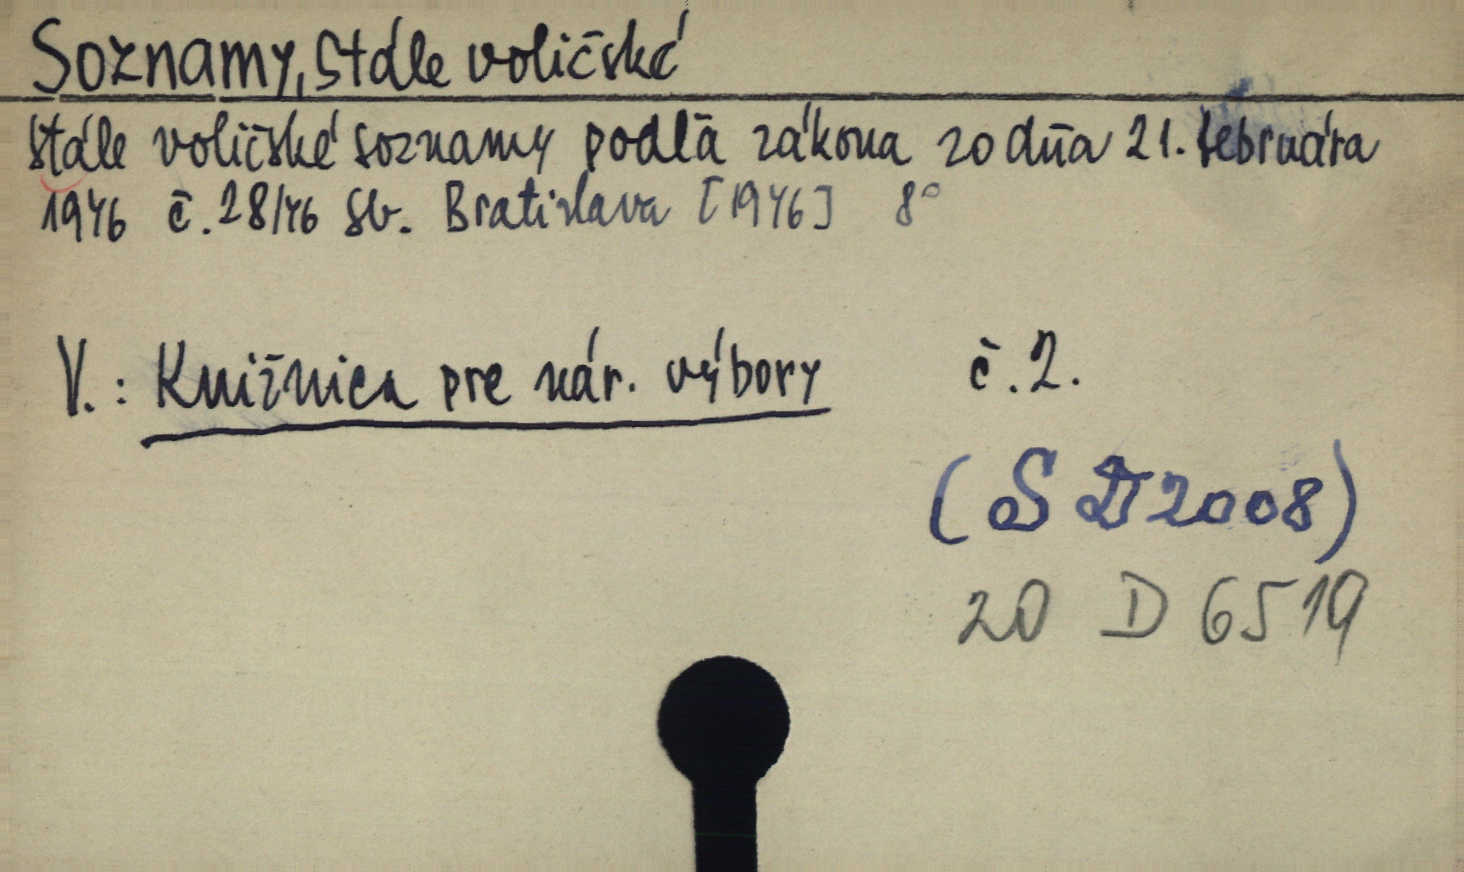 Soznamy, stále voličské
Stále voličské soznamy podľa zákona zo dňa 21. februára
1946 č. 28/46 Sb. Bratislava [1946] 8°
V.: Knižnica pre nár. výbory č. 2.
(SD 2008)
20 D 6519